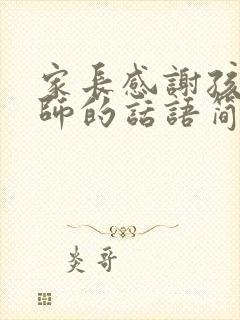 家長感謝孩
師的話語簡
炎哥